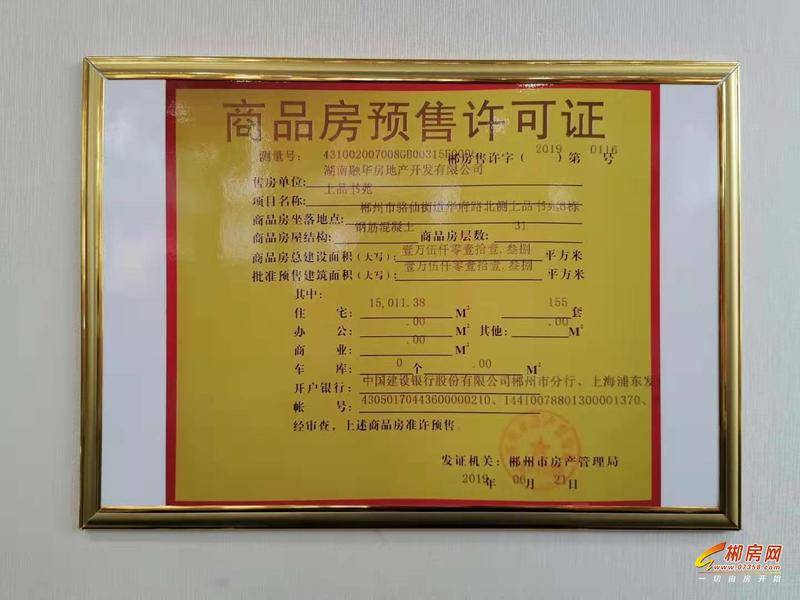 商品房预售许可证
测量号: 431002007008GB00315
郴房售许字( 2019 )第 0116 号
售房单位: 湖南融华房地产开发有限公司
项目名称: 上品书苑
商品房坐落地点: 郴州市骆仙街道华府路北侧上品书苑 栋
商品房屋结构: 钢筋混凝土 商品房层数: 31
商品房总建设面积(大写): 壹万伍仟零壹拾壹.叁捌 平方米
批准预售建筑面积(大写): 壹万伍仟零壹拾壹.叁捌 平方米
其中:
住 宅: 15,011.38 M² 155 套
办 公: .00 M² 其他: .00 M²
商 业: .00 M²
车 库: 0 个 .00 M²
开户银行: 中国建设银行股份有限公司郴州市分行、上海浦东发
帐 号: 43050170443600000210、14410078801300001370、
经审查,上述商品房准许预售。
发证机关: 郴州市房产管理局
2019 年 06 月 21 日
郴房网
www.07358.com
一切由房开始